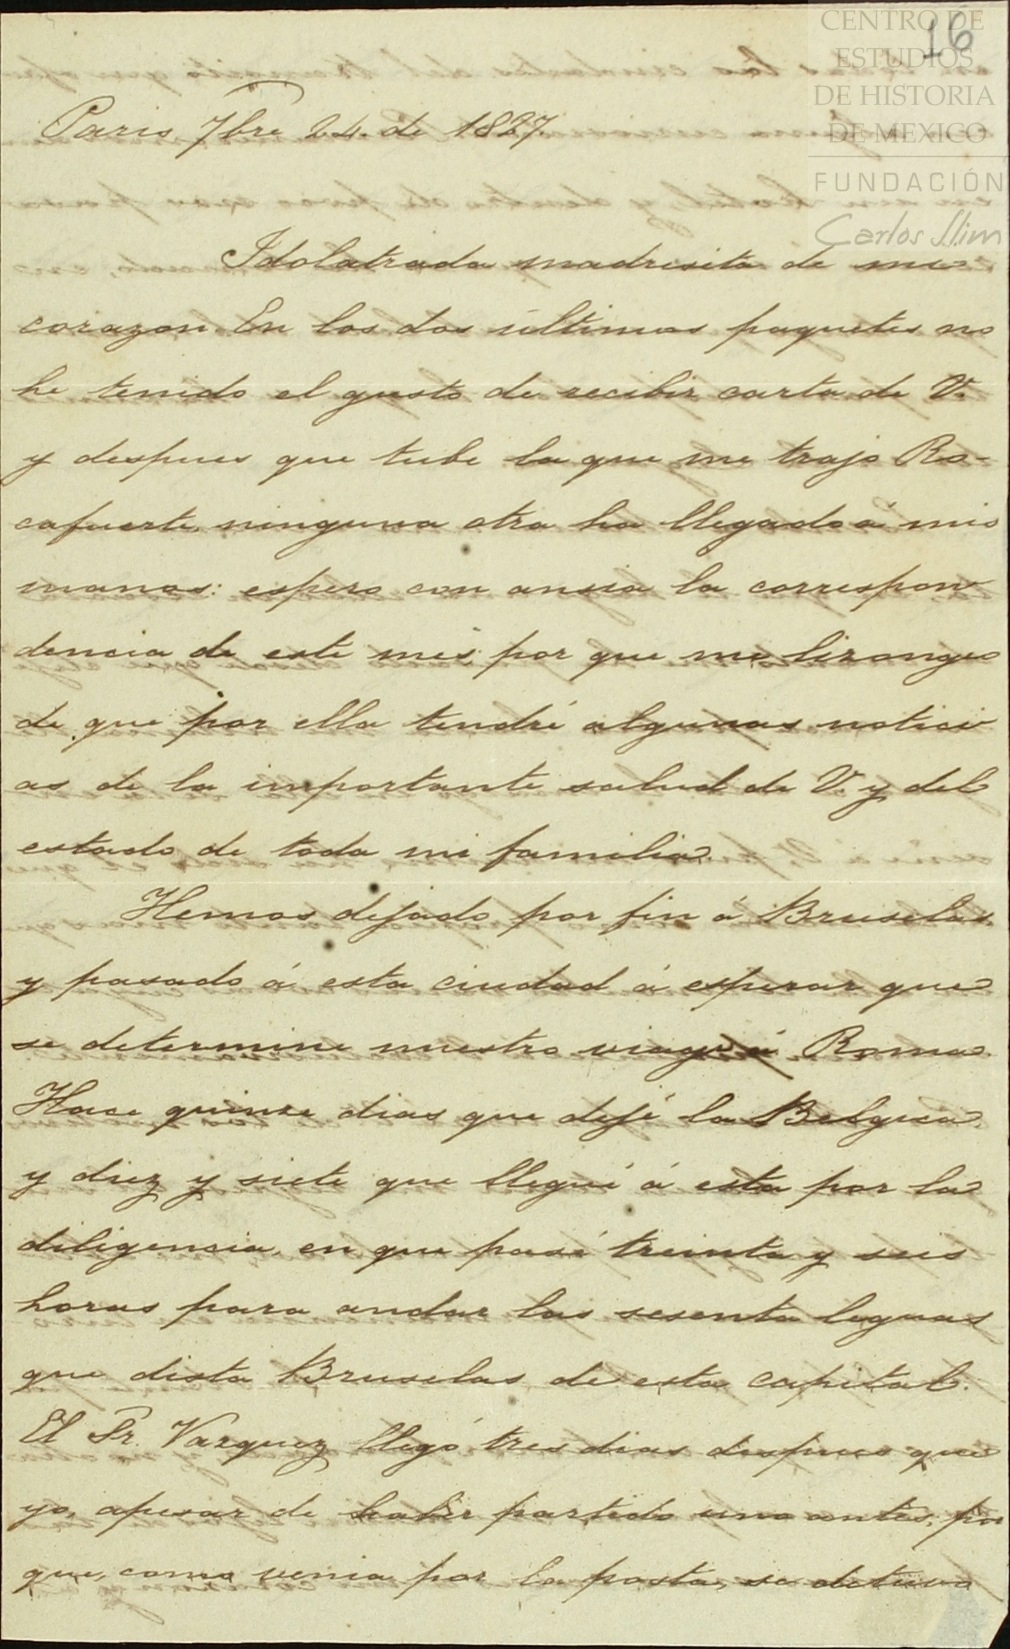 CENTRO DE
ESTUDIOS
DE HISTORIA
DE MEXICO
FUNDACIÓN
Carlos Slim
16
Paris 7bre 24. de 1827.
Idolatrada madresita de mi
corazon. En los dos ultimos paquetes no
he tenido el gusto de recibir carta de V.
y despues que tube la que me trajo Ro-
cafuerte ninguna otra ha llegado á mis
manos: espero con ansia la correspon
dencia de este mes por que me lizongeo
de que por ella tendré algunas notici
as de la importante salud de V. y del
estado de toda mi familia.
Hemos dejado por fin á Bruselas
y pasado á esta ciudad á esperar que
se determine nuestro viage á Roma.
Hace quinse dias que dejé la Belgica
y diez y siete que llegué á esta por la
diligencia, en que pasé treinta y seis
horas para andar las sesenta leguas
que dista Bruselas de esta capital.
El Sr. Vazquez llegó tres dias despues que
yo, apesar de haber partido uno antes, por
que, como venia por la posta, se detuvo